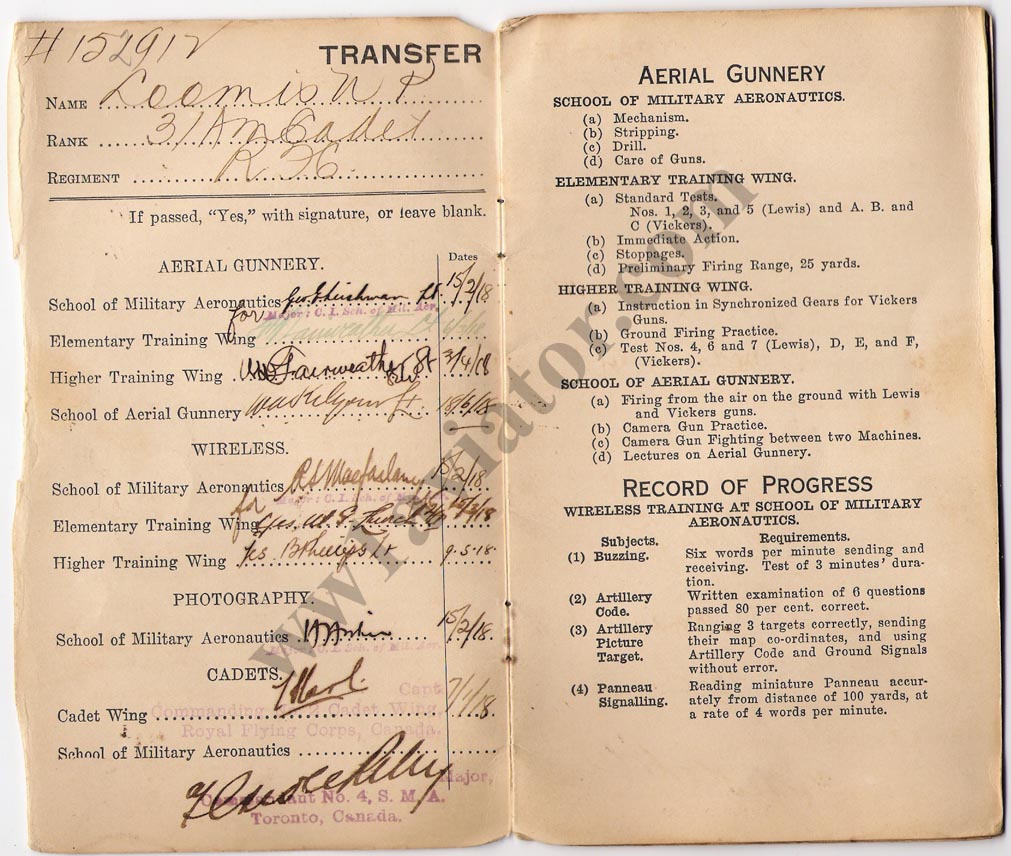 #152912
TRANSFER
NAME Loomis N P
RANK 3/AM Cadet
REGIMENT R.F.C.
If passed, "Yes," with signature, or leave blank.
Dates
AERIAL GUNNERY.
School of Military Aeronautics Lt. 15/2/18
for Major: C. I. Sch. of Mil. Aer.
Elementary Training Wing
Higher Training Wing Fairweather Lt 3/4/18
School of Aerial Gunnery 18/6/18
WIRELESS.
School of Military Aeronautics Macfarlane 15/2/18
for Major: C. I. Sch. of Mil. Aer.
Elementary Training Wing
Higher Training Wing Yes B Phillips Lt 9.5.18
PHOTOGRAPHY.
School of Military Aeronautics 15/2/18.
C. I. Sch. of Mil. Aer.
CADETS.
Capt.
Cadet Wing 7/1/18.
Commanding Cadet Wing,
Royal Flying Corps, Canada.
School of Military Aeronautics
Major,
Commandant No. 4, S. M. A.
Toronto, Canada.
AERIAL GUNNERY
SCHOOL OF MILITARY AERONAUTICS.
(a) Mechanism.
(b) Stripping.
(c) Drill.
(d) Care of Guns.
ELEMENTARY TRAINING WING.
(a) Standard Tests.
Nos. 1, 2, 3, and 5 (Lewis) and A. B. and
C (Vickers).
(b) Immediate Action.
(c) Stoppages.
(d) Preliminary Firing Range, 25 yards.
HIGHER TRAINING WING.
(a) Instruction in Synchronized Gears for Vickers
Guns.
(b) Ground Firing Practice.
(c) Test Nos. 4, 6 and 7 (Lewis), D, E, and F,
(Vickers).
SCHOOL OF AERIAL GUNNERY.
(a) Firing from the air on the ground with Lewis
and Vickers guns.
(b) Camera Gun Practice.
(c) Camera Gun Fighting between two Machines.
(d) Lectures on Aerial Gunnery.
RECORD OF PROGRESS
WIRELESS TRAINING AT SCHOOL OF MILITARY
AERONAUTICS.
Subjects. Requirements.
(1) Buzzing. Six words per minute sending and
receiving. Test of 3 minutes' dura-
tion.
(2) Artillery Written examination of 6 questions
Code. passed 80 per cent. correct.
(3) Artillery Ranging 3 targets correctly, sending
Picture their map co-ordinates, and using
Target. Artillery Code and Ground Signals
without error.
(4) Panneau Reading miniature Panneau accur-
Signalling. ately from distance of 100 yards, at
a rate of 4 words per minute.
www1aviator.com